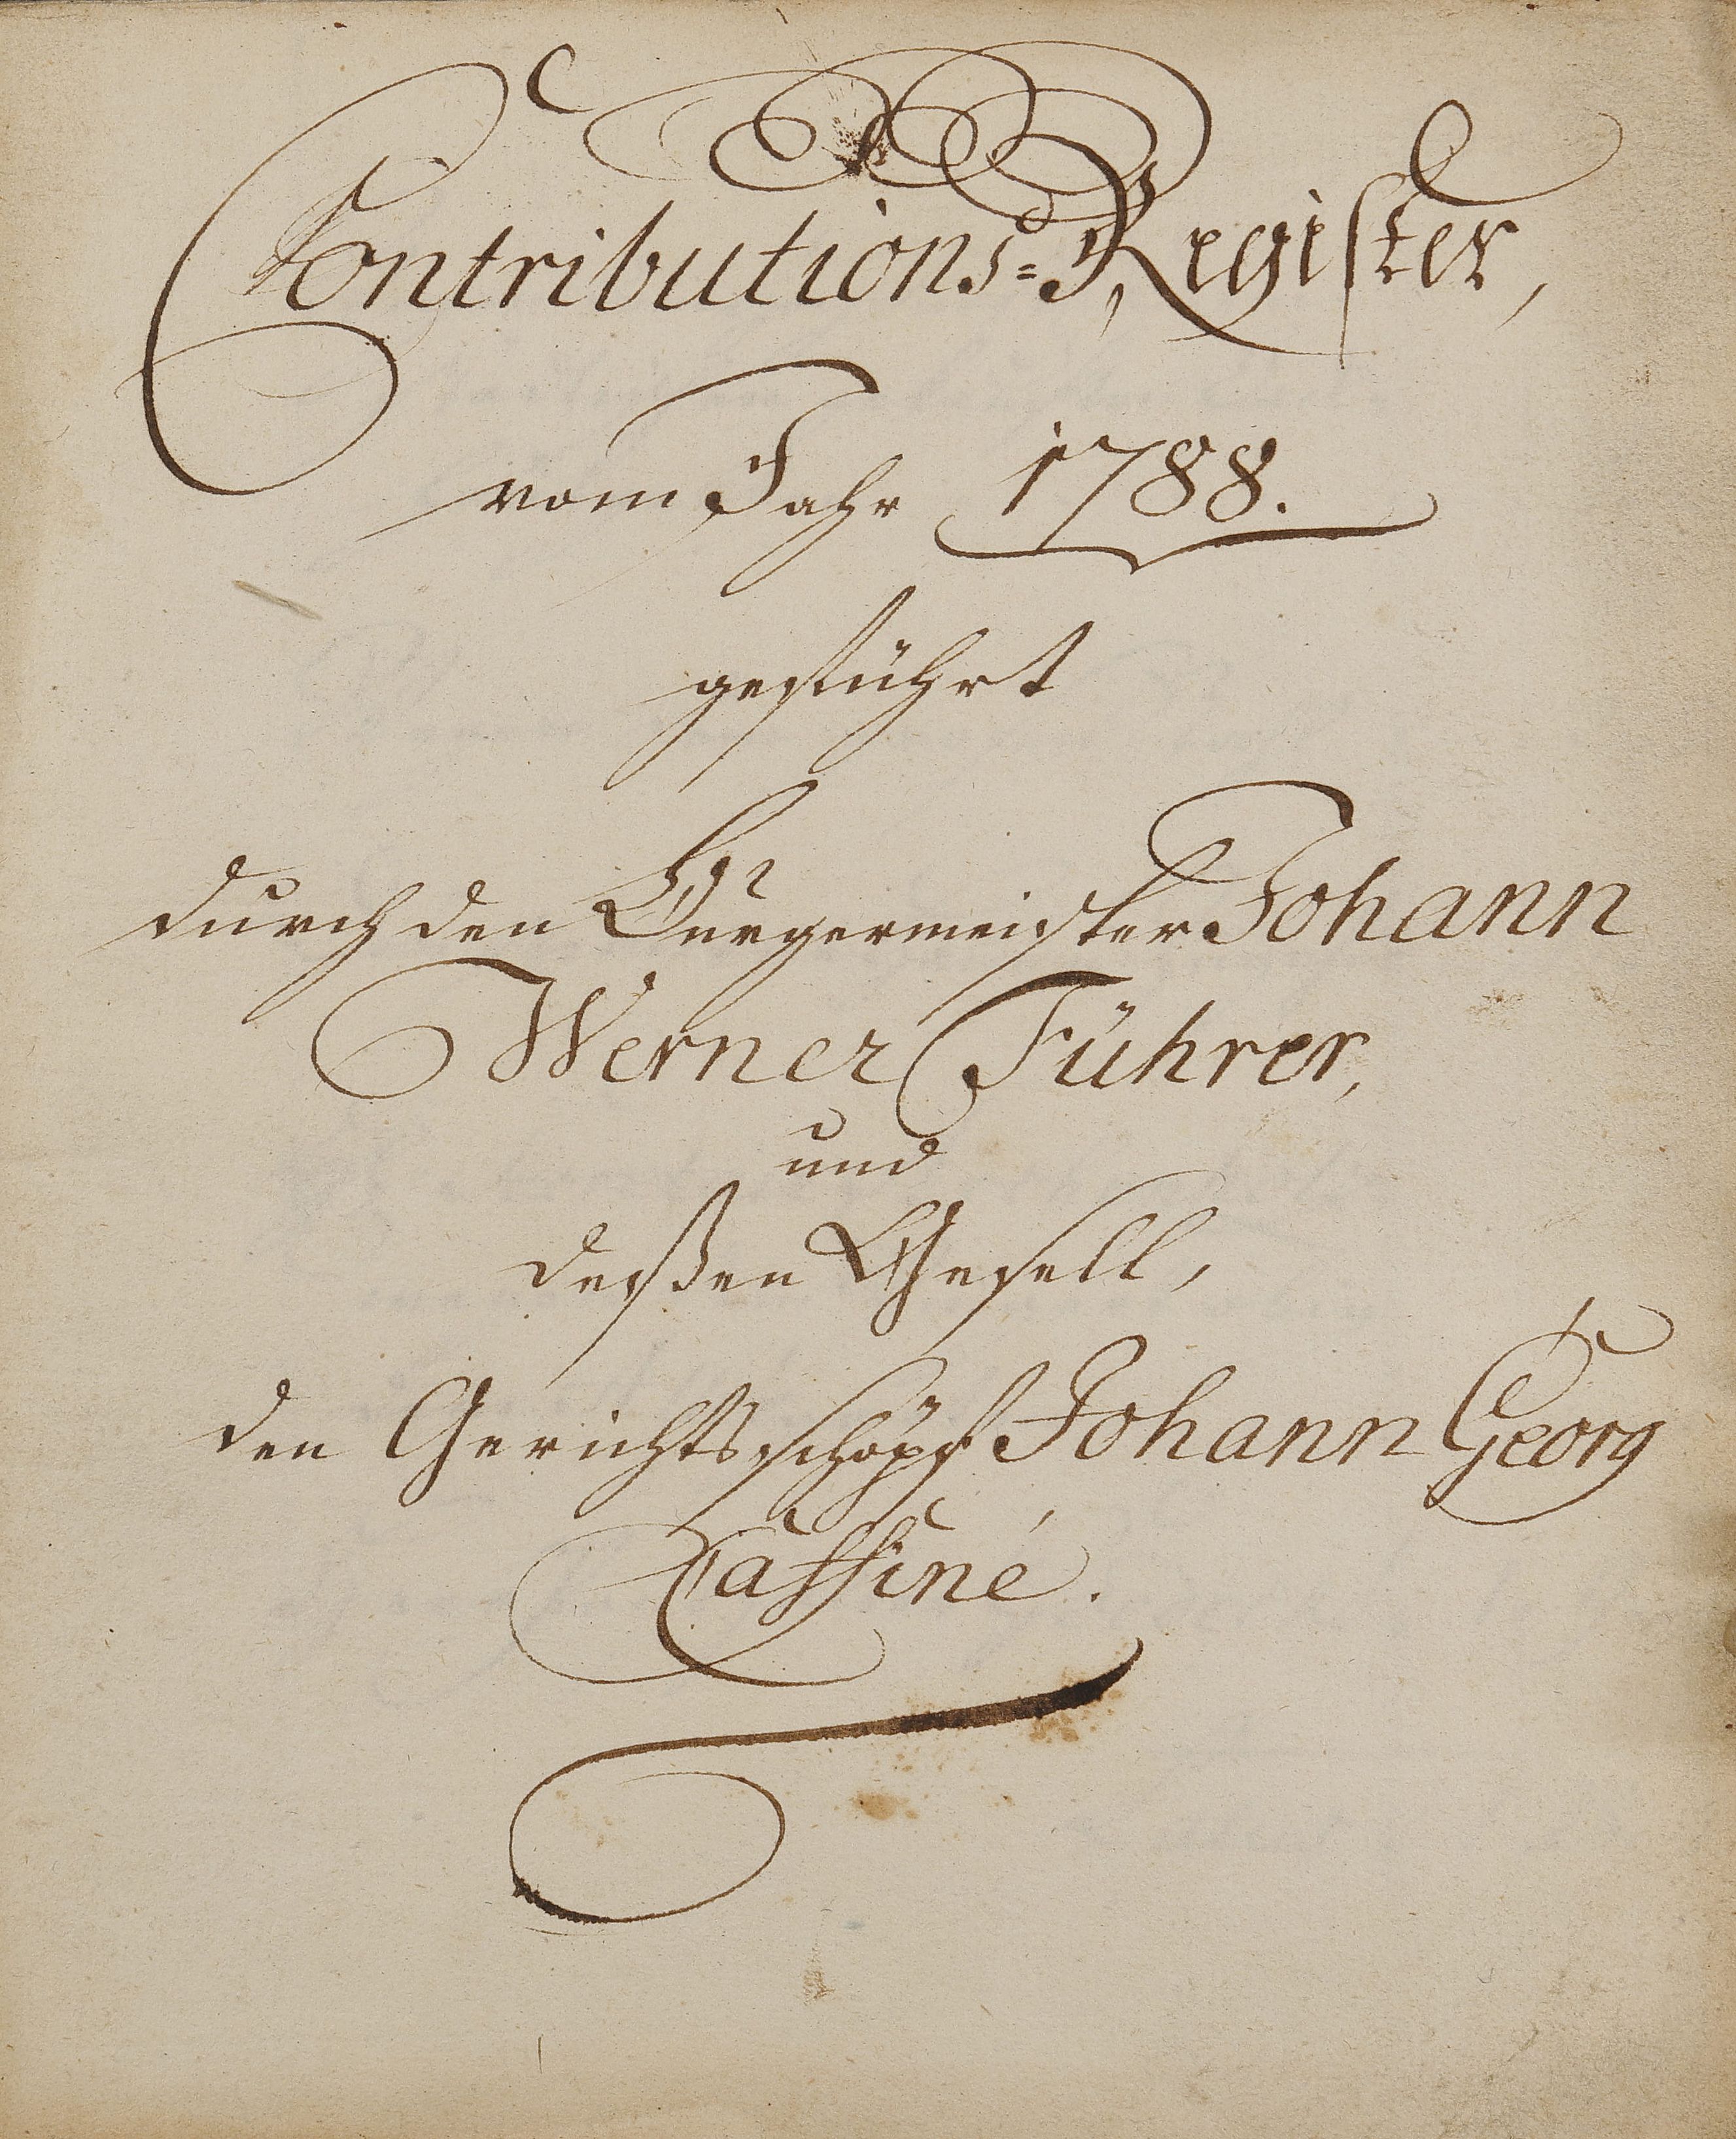 Contributions-Register,
vom Jahr 1788.
geführt
durch den Burgermeister Johann
Werner Führer,
und
deßen Gesell,
den Gerichtsschöpf Johann Georg
Caffiné.